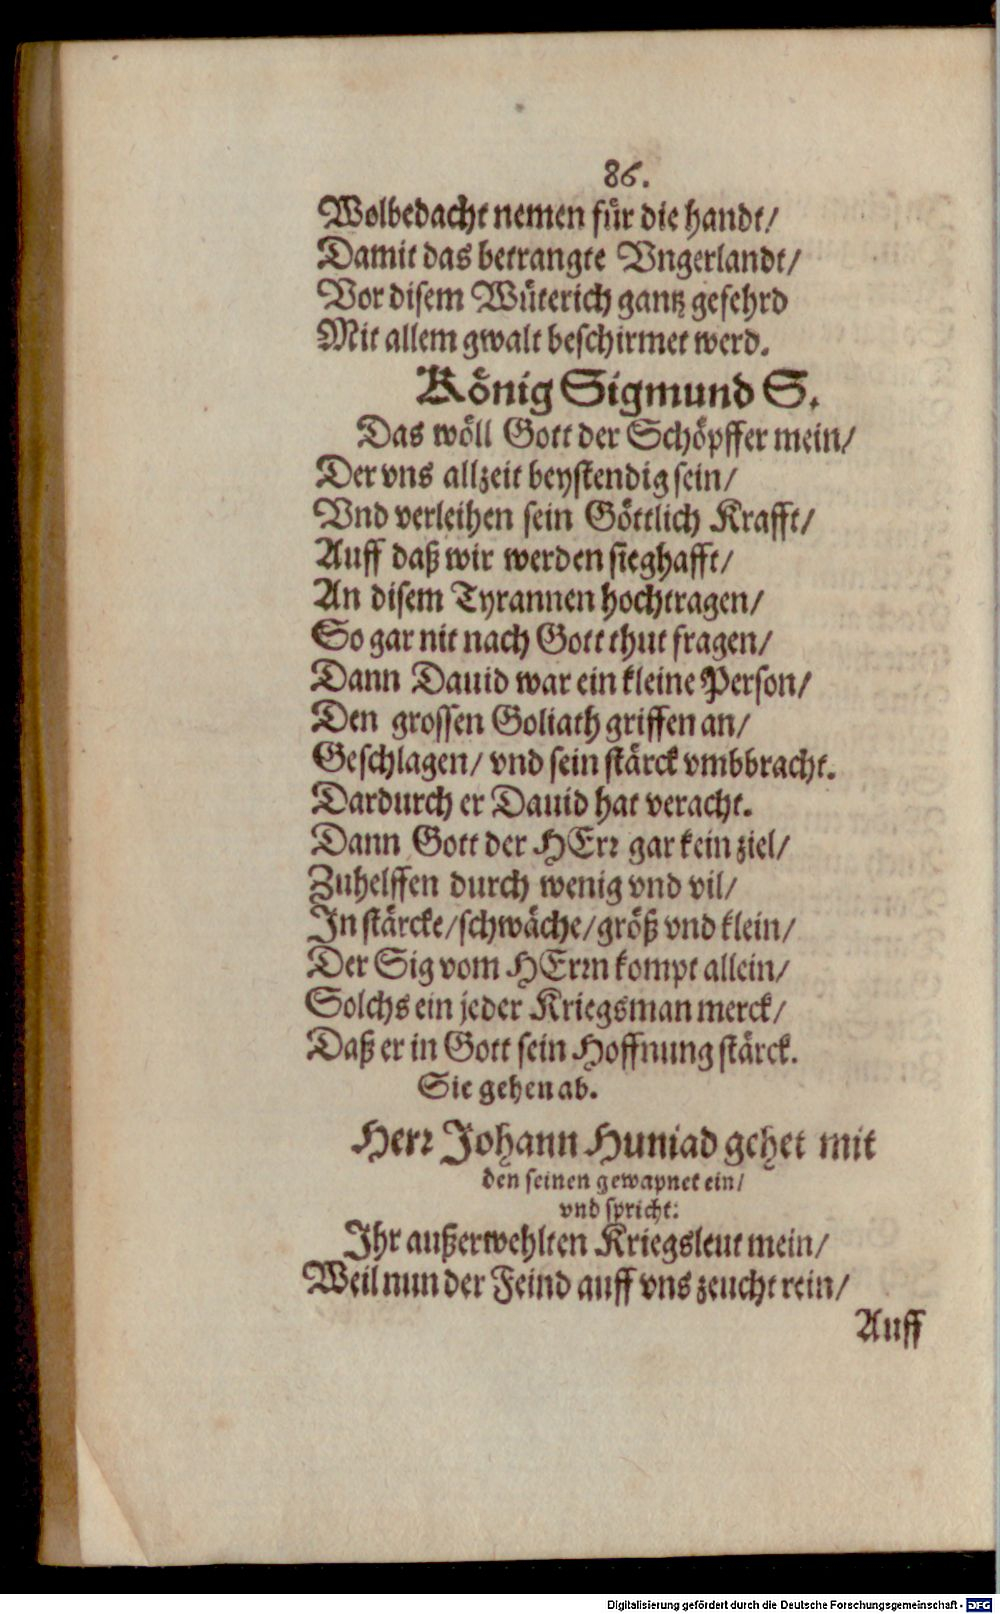 86.
Wolbedacht nemen für die handt/
Damit das betrangte Vngerlandt/
Vor disem Wüterich gantz gefehrd
Mit allem gwalt beschirmet werd.
König Sigmund S.
Das wöll Gott der Schöpffer mein/
Der vns allzeit beystendig sein/
Vnd verleihen sein Göttlich Krafft/
Auff daß wir werden sieghafft/
An disem Tyrannen hochtragen/
So gar nit nach Gott thut fragen/
Dann Dauid war ein kleine Person/
Den grossen Goliath griffen an/
Geschlagen/ vnd sein stärck vmbbracht.
Dardurch er Dauid hat veracht.
Dann Gott der HErr gar kein ziel/
Zuhelffen durch wenig vnd vil/
In stärcke/schwäche/größ vnd klein/
Der Sig vom HErrn kompt allein/
Solchs ein jeder Kriegsman merck/
Daß er in Gott sein Hoffnung stärck.
Sie gehen ab.
Herr Johann Huniad gehet mit
den seinen gewapnet ein/
vnd spricht:
Ihr außerwehlten Kriegsleut mein/
Weil nun der Feind auff vns zeucht rein/
Auff
Digitalisierung gefördert durch die Deutsche Forschungsgemeinschaft - DFG